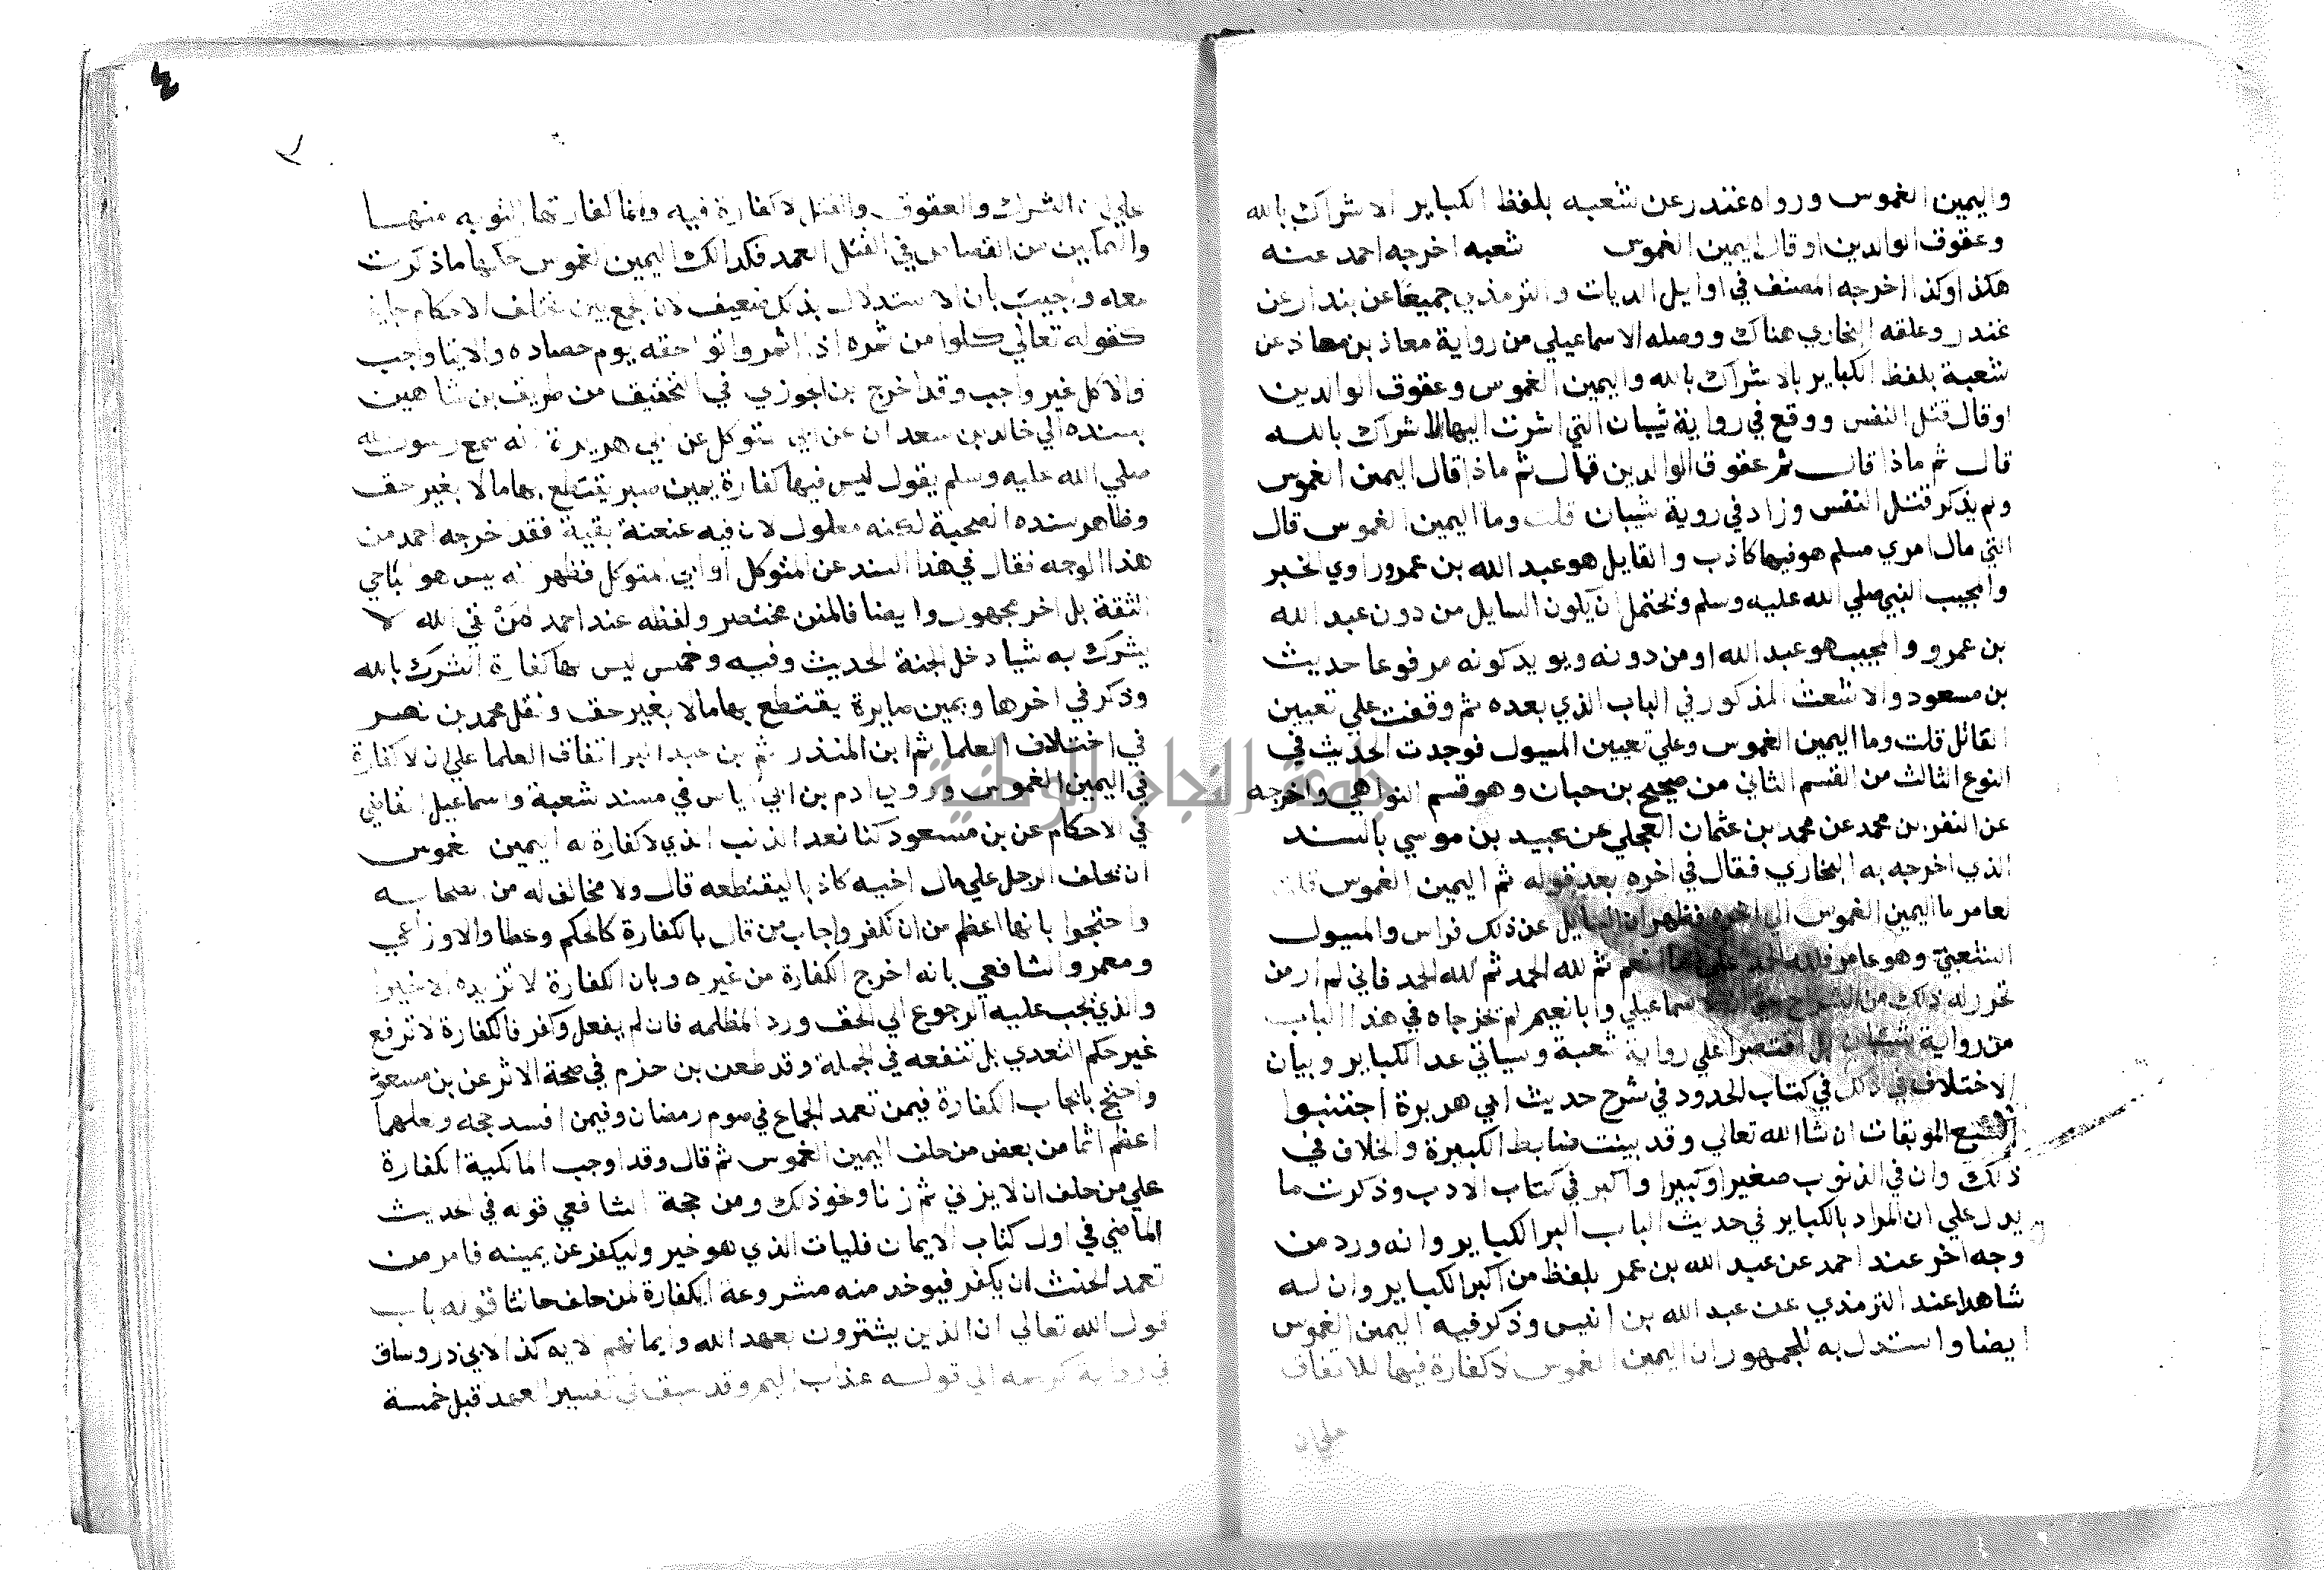 واليمين الغموس ورواه غندر عن شعبه بلفظ الكباير الاشراك بالله
وعقوق الوالدين او قال اليمين الغموس شعبه اخرجه احمد عنه
هكذا وكذا اخرجه المصنف في اوايل الديات والترمذي جميعا عن بندار عن
غندر وعلقه البخاري هناك ووصله الاسماعيلي من رواية معاذ بن معاذ عن
شعبة بلفظ الكباير بالاشراك بالله واليمين الغموس وعقوق الوالدين
او قال قتل النفس ووقع في رواية شيبان التي اشرت اليها الاشراك بالله
قال ثم ماذا قال ثم عقوق الوالدين قال ثم ماذا قال اليمين الغموس
ولم يذكر قتل النفس وزاد في روية شيبان قلت وما اليمين الغموس قال
التي مال امري مسلم هو فيها كاذب والقايل هو عبد الله بن عمرو راوي الخبر
والمجيب النبي صلي الله عليه وسلم ويحتمل ان يكون السايل من دون عبد الله
بن عمرو والمجيب هو عبد الله او من دونه ويويد كونه مرفوعا حديث
بن مسعود والاشعث المذكور في الباب الذي بعده ثم وقفت علي تعيين
القائل قلت وما اليمين الغموس وعلي تعيين المسول فوجدت الحديث في
النوع الثالث من القسم الثاني من صحيح بن حبان وهو قسم النواهي واخرجه
عن النضر بن محمد عن محمد بن عثمان العجلي عن عبيد بن موسي بالسند
الذي اخرجه به البخاري فقال في اخره بعد قوله ثم اليمين الغموس قلت
لعامر ما اليمين الغموس الي اخره فظهر ان السايل عن ذلك فراس والمسول
الشعبي وهو عامر فلله الحمد علي ما انعم ثم لله الحمد ثم لله الحمد فاني لم ار من
تحرر له ذلك من الشراح حتي ان الاسماعيلي وابا نعيم لم يخرجاه في هذا الباب
من رواية شيبان بل اقتصرا علي رواية شعبة وسياتي عد الكباير وبيان
الاختلاف في ذلك في كتاب الحدود في شرح حديث ابي هريرة اجتنبوا
السبع الموبقات ان شا الله تعالي وقد بينت ضابط الكبيرة والخلاف في
ذلك وان في الذنوب صغيرا وكبيرا واكبر في كتاب الادب وذكرت ما
يدل علي ان المراد بالكباير في حديث الباب اكبر الكباير وانه ورد من
وجه اخر عند احمد عن عبد الله بن عمر بلفظ من اكبر الكباير وان له
شاهدا عند الترمذي عن عبد الله بن انيس وذكر فيه اليمين الغموس
ايضا واستدل به للجمهور ان اليمين الغموس لا كفارة فيها للاتفاق
علي ان
علي ان الشرك والعقوق والقتل لا كفارة فيه وانما كفارتها التوبه منها
والتمكين من القصاص في القتل العمد فكذلك اليمين الغموس حكمها ما ذكرت
معه واجيب بان الاستدلال بذلك ضعيف لان الجمع بين مختلف الاحكام جايز
كقوله تعالي كلوا من ثمره اذا اثمر واتوا حقه يوم حصاده والايتا واجب
والاكل غير واجب وقد اخرج بن الجوزي في التحقيق من طريف بن شاهين
بسنده الي خالد بن سعدان عن ابي متوكل عن ابي هريرة انه سمع رسول الله
صلي الله عليه وسلم يقول ليس فيها كفارة يمين صبر يقتطع بها مالا بغير حق
وظاهر سنده الصحبة لكنه معلول لان فيه عنعنة بقية فقد خرجه احمد من
هذا الوجه فقال في هذا السند عن المتوكل او ابي المتوكل فظهر انه ليس هو الناجي
الثقة بل اخر مجهول وايضا فالمتن مختصر ولفظه عند احمد من لقي الله لا
يشرك به شيا دخل الجنة الحديث وفيه وخمس ليس بها كفارة الشرك بالله
وذكر في اخرها ويمين صابرة يقتطع بها مالا بغير حق ونقل محمد بن نصر
في اختلاف العلما ثم ابن المنذر ثم بن عبد البر اتفاق العلما علي ان لا كفارة
في اليمين الغموس وروي ادم بن ابي اياس في مسند شعبة واسماعيل القاضي
في الاحكام عن بن مسعود كنا نعد الذنب الذي لا كفارة له اليمين الغموس
ان يحلف الرجل علي مال اخيه كاذبا ليقتطعه قال ولا مخالف له من الصحابه
واحتجوا بانها اعظم من ان تكفر واجاب من قال بالكفارة كالحكم وعطا والاوزاعي
ومعمر والشافعي بانه احوج الكفارة من غيره وبان الكفارة لا تزيده الا خيرا
والذي يجب عليه الرجوع الي الحق ورد المظلمه فان لم يفعل وكفر فالكفارة لا ترفع
غير حكم التعدي بل تنفعه في الجملة وقد طعن بن حزم في صحة الاثر عن بن مسعود
واحتج بايجاب الكفارة فيمن تعمد الجماع في صوم رمضان وفيمن افسد حجه ولعلهما
اعظم اثما من بعض من حلف اليمين الغموس ثم قال وقد اوجب المالكية الكفارة
علي من حلف ان لا يزني ثم زنا ونحو ذلك ومن حجة الشافعي قوله في الحديث
الماضي في اول كتاب الايمان فليات الذي هو خير وليكفر عن يمينه فامر من
تعمد الحنث ان يكفر فيوخذ منه مشروعة الكفارة لمن حلف حانثا قوله باب
قول الله تعالي ان الذين يشترون بعهد الله وايمانهم لايه كذا لابي ذر وساق
في رواية كريمه الي قوله عذاب اليم وقد سبق في تفسير العمد قبل خمسة
جامعة النجاح الوطنية